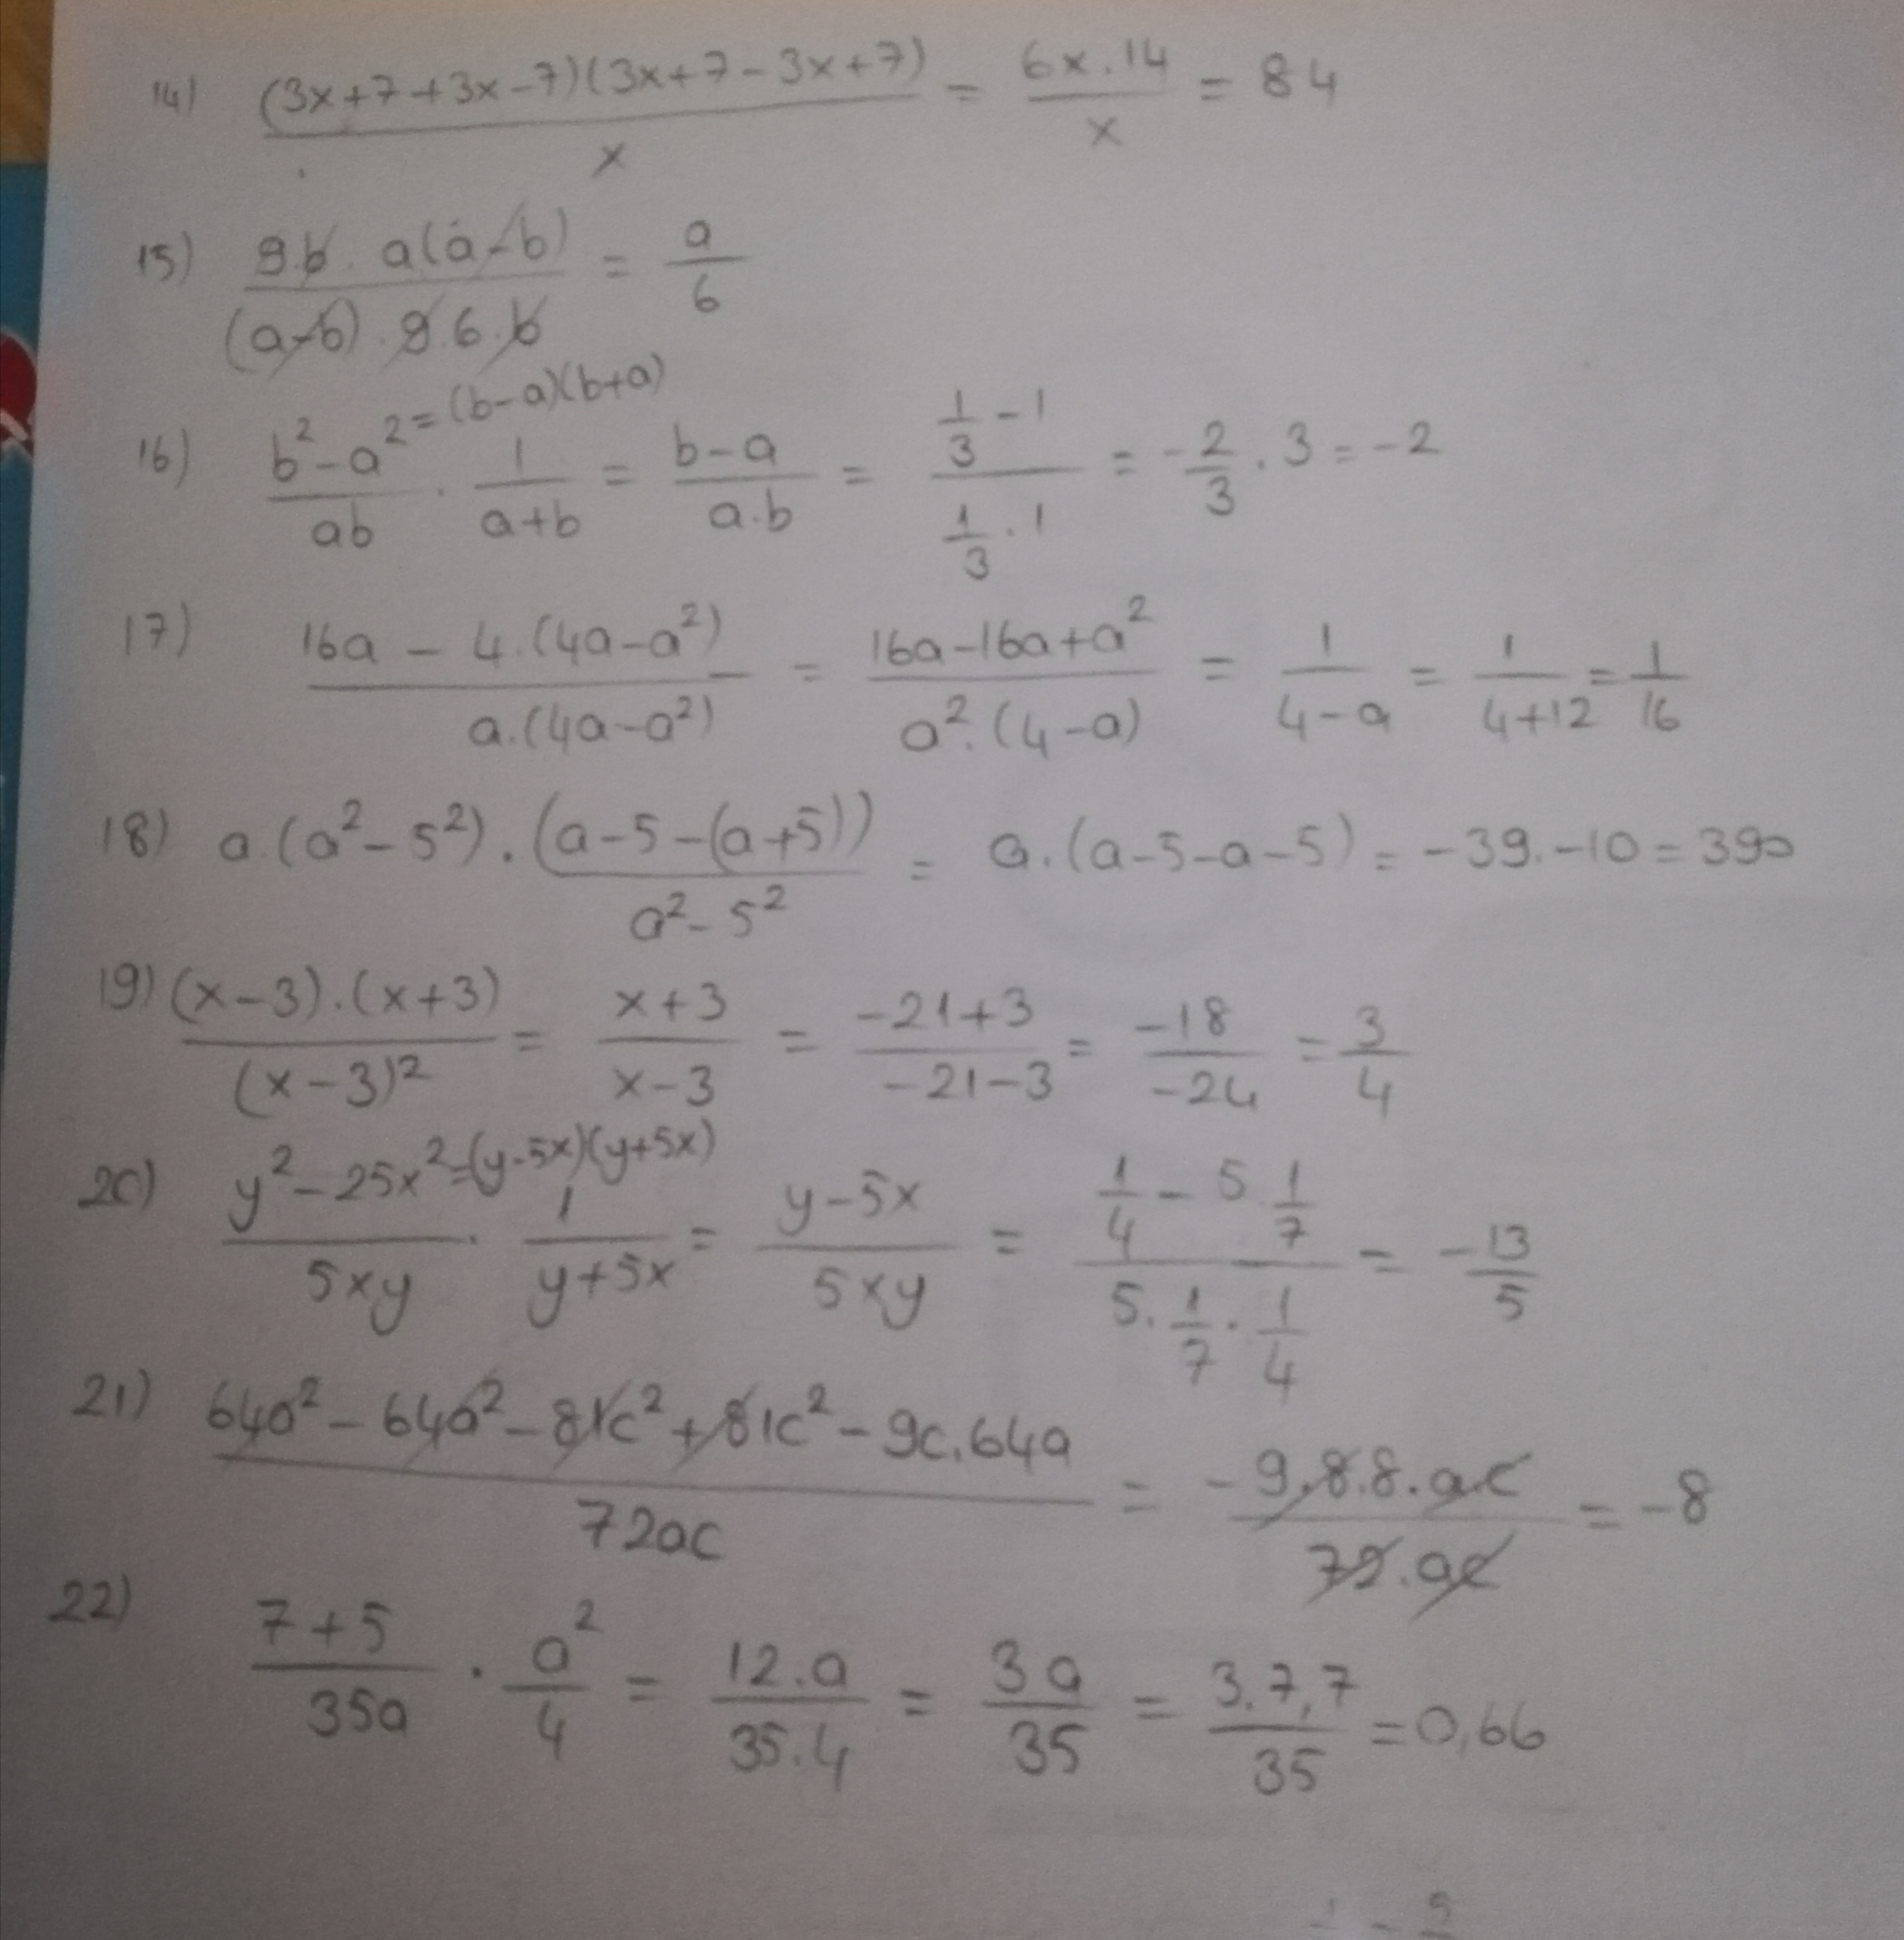 14) (3x+7+3x-7)(3x+7-3x+7)/x = 6x.14/x = 84
15) 9.b. a(a-b)/(a-b).9.6.b = a/6
16) b²-a²=(b-a)(b+a)/ab . 1/a+b = b-a/a.b = 1/3 -1/1/3 .1 = -2/3 . 3 = -2
17) 16a - 4.(4a-a²)/a.(4a-a²) = 16a-16a+a²/a².(4-a) = 1/4-a = 1/4+12 = 1/16
18) a.(a²-5²).(a-5-(a+5))/a²-5² = a.(a-5-a-5) = -39.-10 = 390
19) (x-3).(x+3)/(x-3)² = x+3/x-3 = -21+3/-21-3 = -18/-24 = 3/4
20) y²-25x²=(y-5x)(y+5x)/5xy . 1/y+5x = y-5x/5xy = 1/4 - 5.1/7/5.1/7.1/4 = -13/5
21) 64a²-64a²-81c²+81c²-9c.64a/72ac = -9.8.8.ac/72.ac = -8
22) 7+5/35a . a²/4 = 12.a/35.4 = 3a/35 = 3.7,7/35 = 0,66